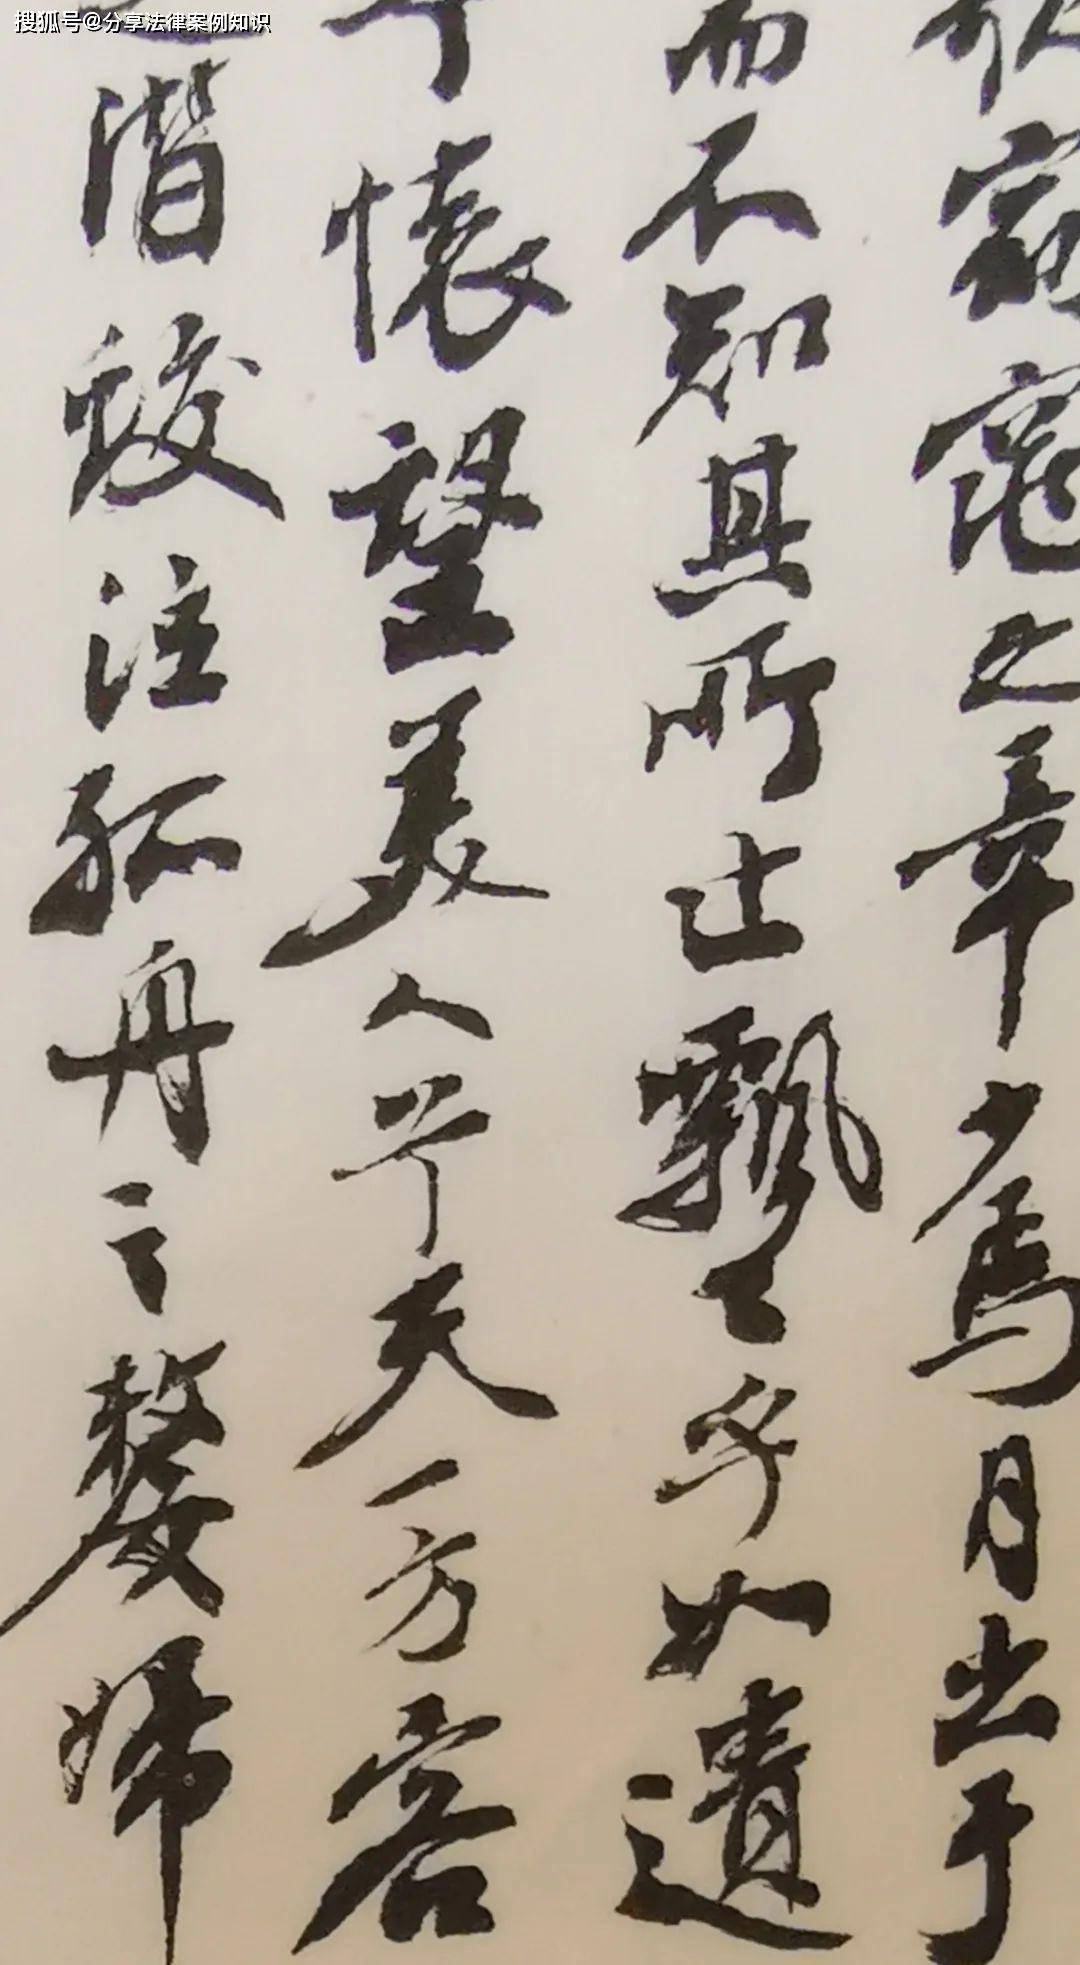 搜狐号@分享法律案例知识
窈窕之章少焉月出于
而不知其所止飄々乎如遺
予懷望美人兮天一方客
潛蛟泣孤舟之嫠婦